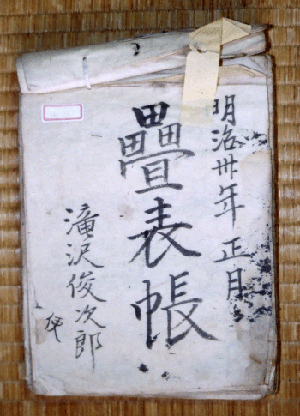 明治卅年正月
疊表帳
滝沢俊次郎